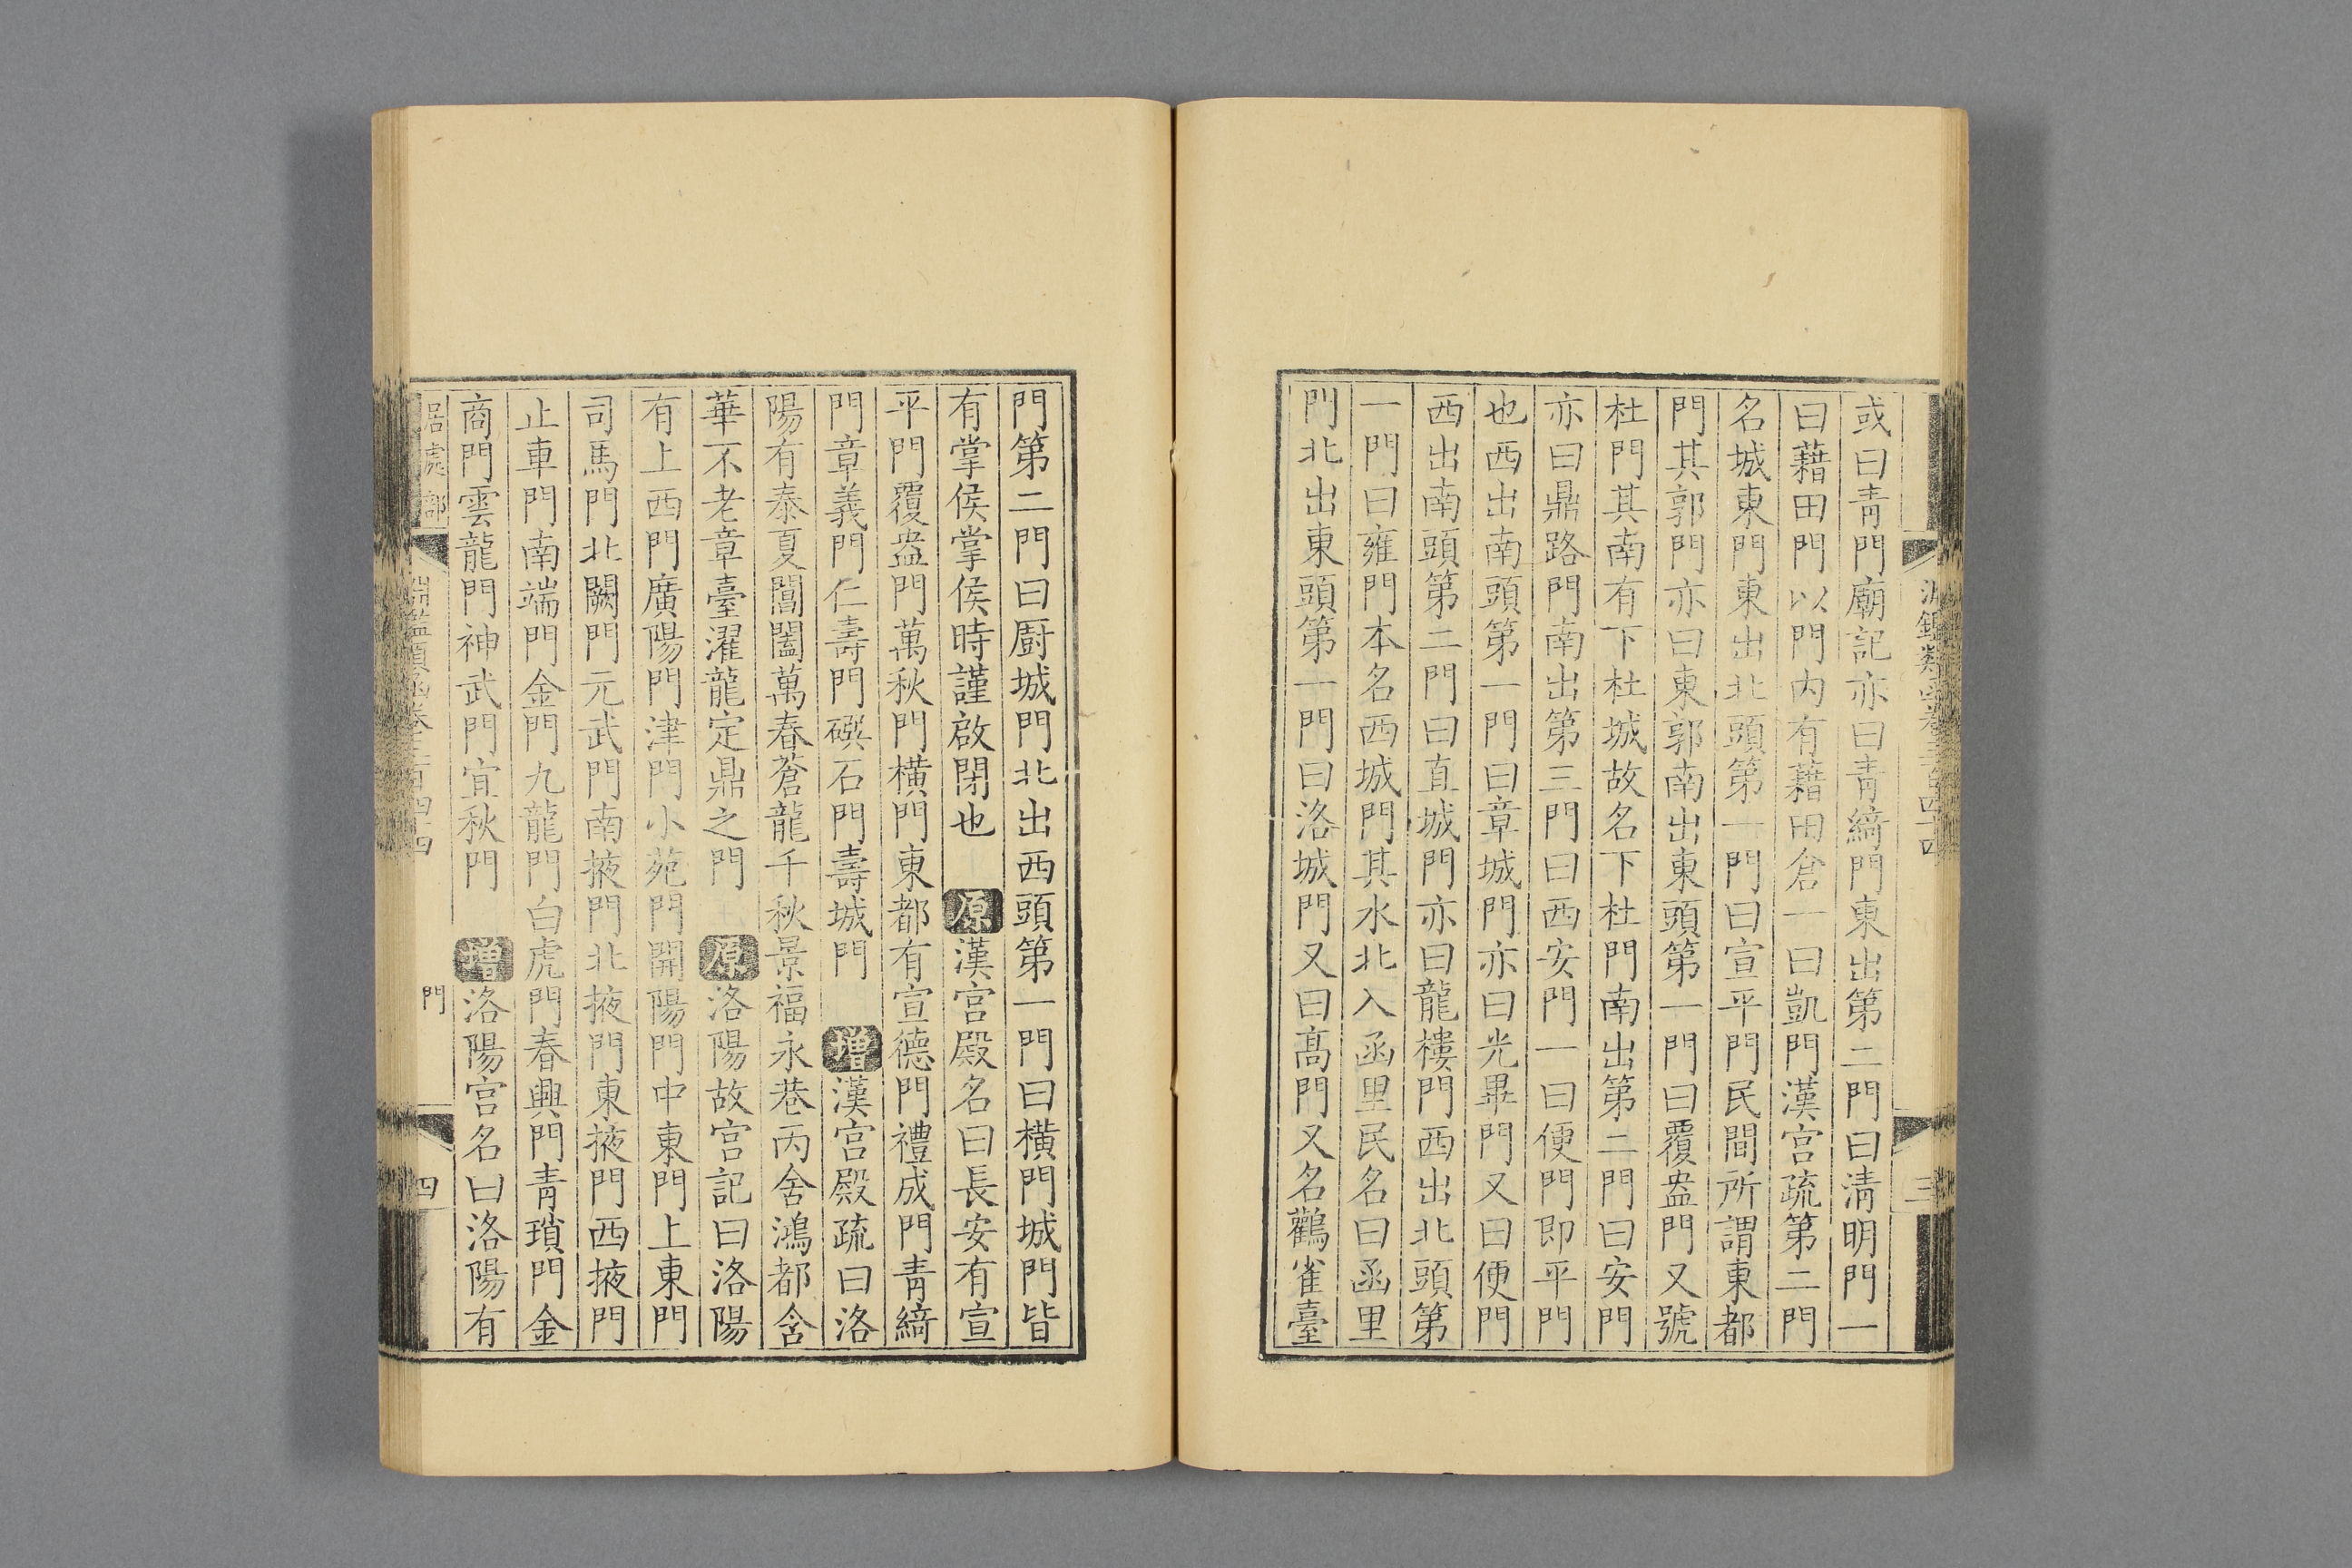 或曰青門廟記亦曰青綺門東出第二門曰清明門一
曰藉田門以門内有藉田倉一曰凱門漢宫疏第二門
名城東門東出北頭第一門曰宣平門民間所謂東都
門其郭門亦曰東郭南出東頭第一門曰覆盎門又號
杜門其南有下杜城故名下杜門南出第二門曰安門
亦曰鼎路門南出第三門曰西安門一曰便門即平門
也西出南頭第一門曰章城門亦曰光畢門又曰便門
西出南頭第二門曰直城門亦曰龍樓門西出北頭第
一門曰雍門本名西城門其水北入函里民名曰函里
門北出東頭第一門曰洛城門又曰高門又名鸛雀臺
三
門第二門曰厨城門北出西頭第一門曰橫門城門皆
有掌侯掌侯時謹啟閉也 原 漢宫殿名曰長安有宣
平門覆盎門萬秋門橫門東都有宣德門禮成門青綺
門章義門仁壽門磸石門壽城門 增 漢宫殿疏曰洛
陽有泰夏閶闔萬春蒼龍千秋景福永巷丙舍鴻都含
華不老章臺濯龍定鼎之門 原 洛陽故宫記曰洛陽
有上西門廣陽門津門小苑門開陽門中東門上東門
司馬門北闕門元武門南掖門北掖門東掖門西掖門
止車門南端門金門九龍門白虎門春興門青瑣門金
商門雲龍門神武門宜秋門 增 洛陽宫名曰洛陽有
居處部
門
四